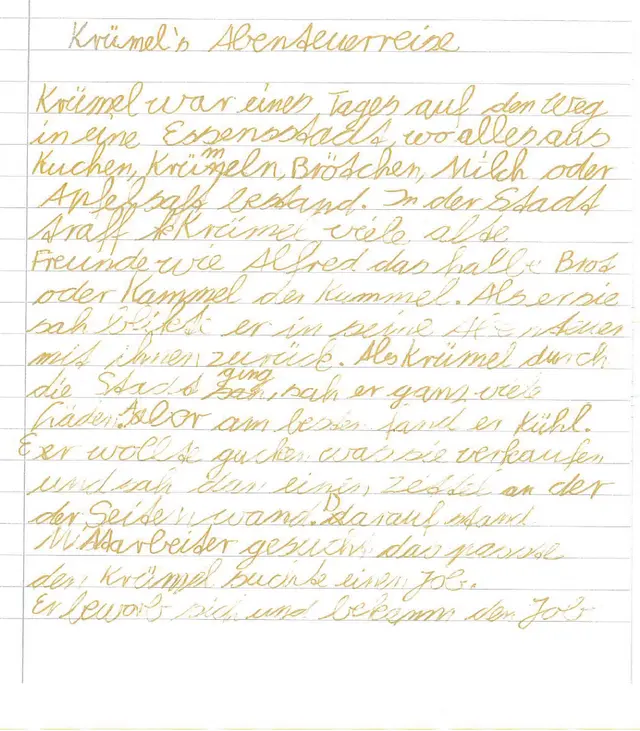 Krümel's Abenteuerreise
Krümel war eines Tages auf den Weg
in eine Essensstadt, wo alles aus
Kuchen, Krümmeln, Brötchen, Milch oder
Apfelsaft bestand. In der Stadt
traff Krümel viele alte
Freunde wie Alfred das halbe Brot
oder Kammel der Kummel. Als er sie
sah blikte er in seine Abenteuer
mit ihnen zurück. Als Krümel durch
die Stadt ging, sah er ganz viele
Läden. Aber am besten fand er Kühl.
Eer wollte gucken was sie verkaufen
und sah dan einen Zettel an der
der Seitenwand. Darauf stand
Mitarbeiter gesucht das passte
den Krümel suchte einen Job.
Er bewarb sich und bekamm den Job